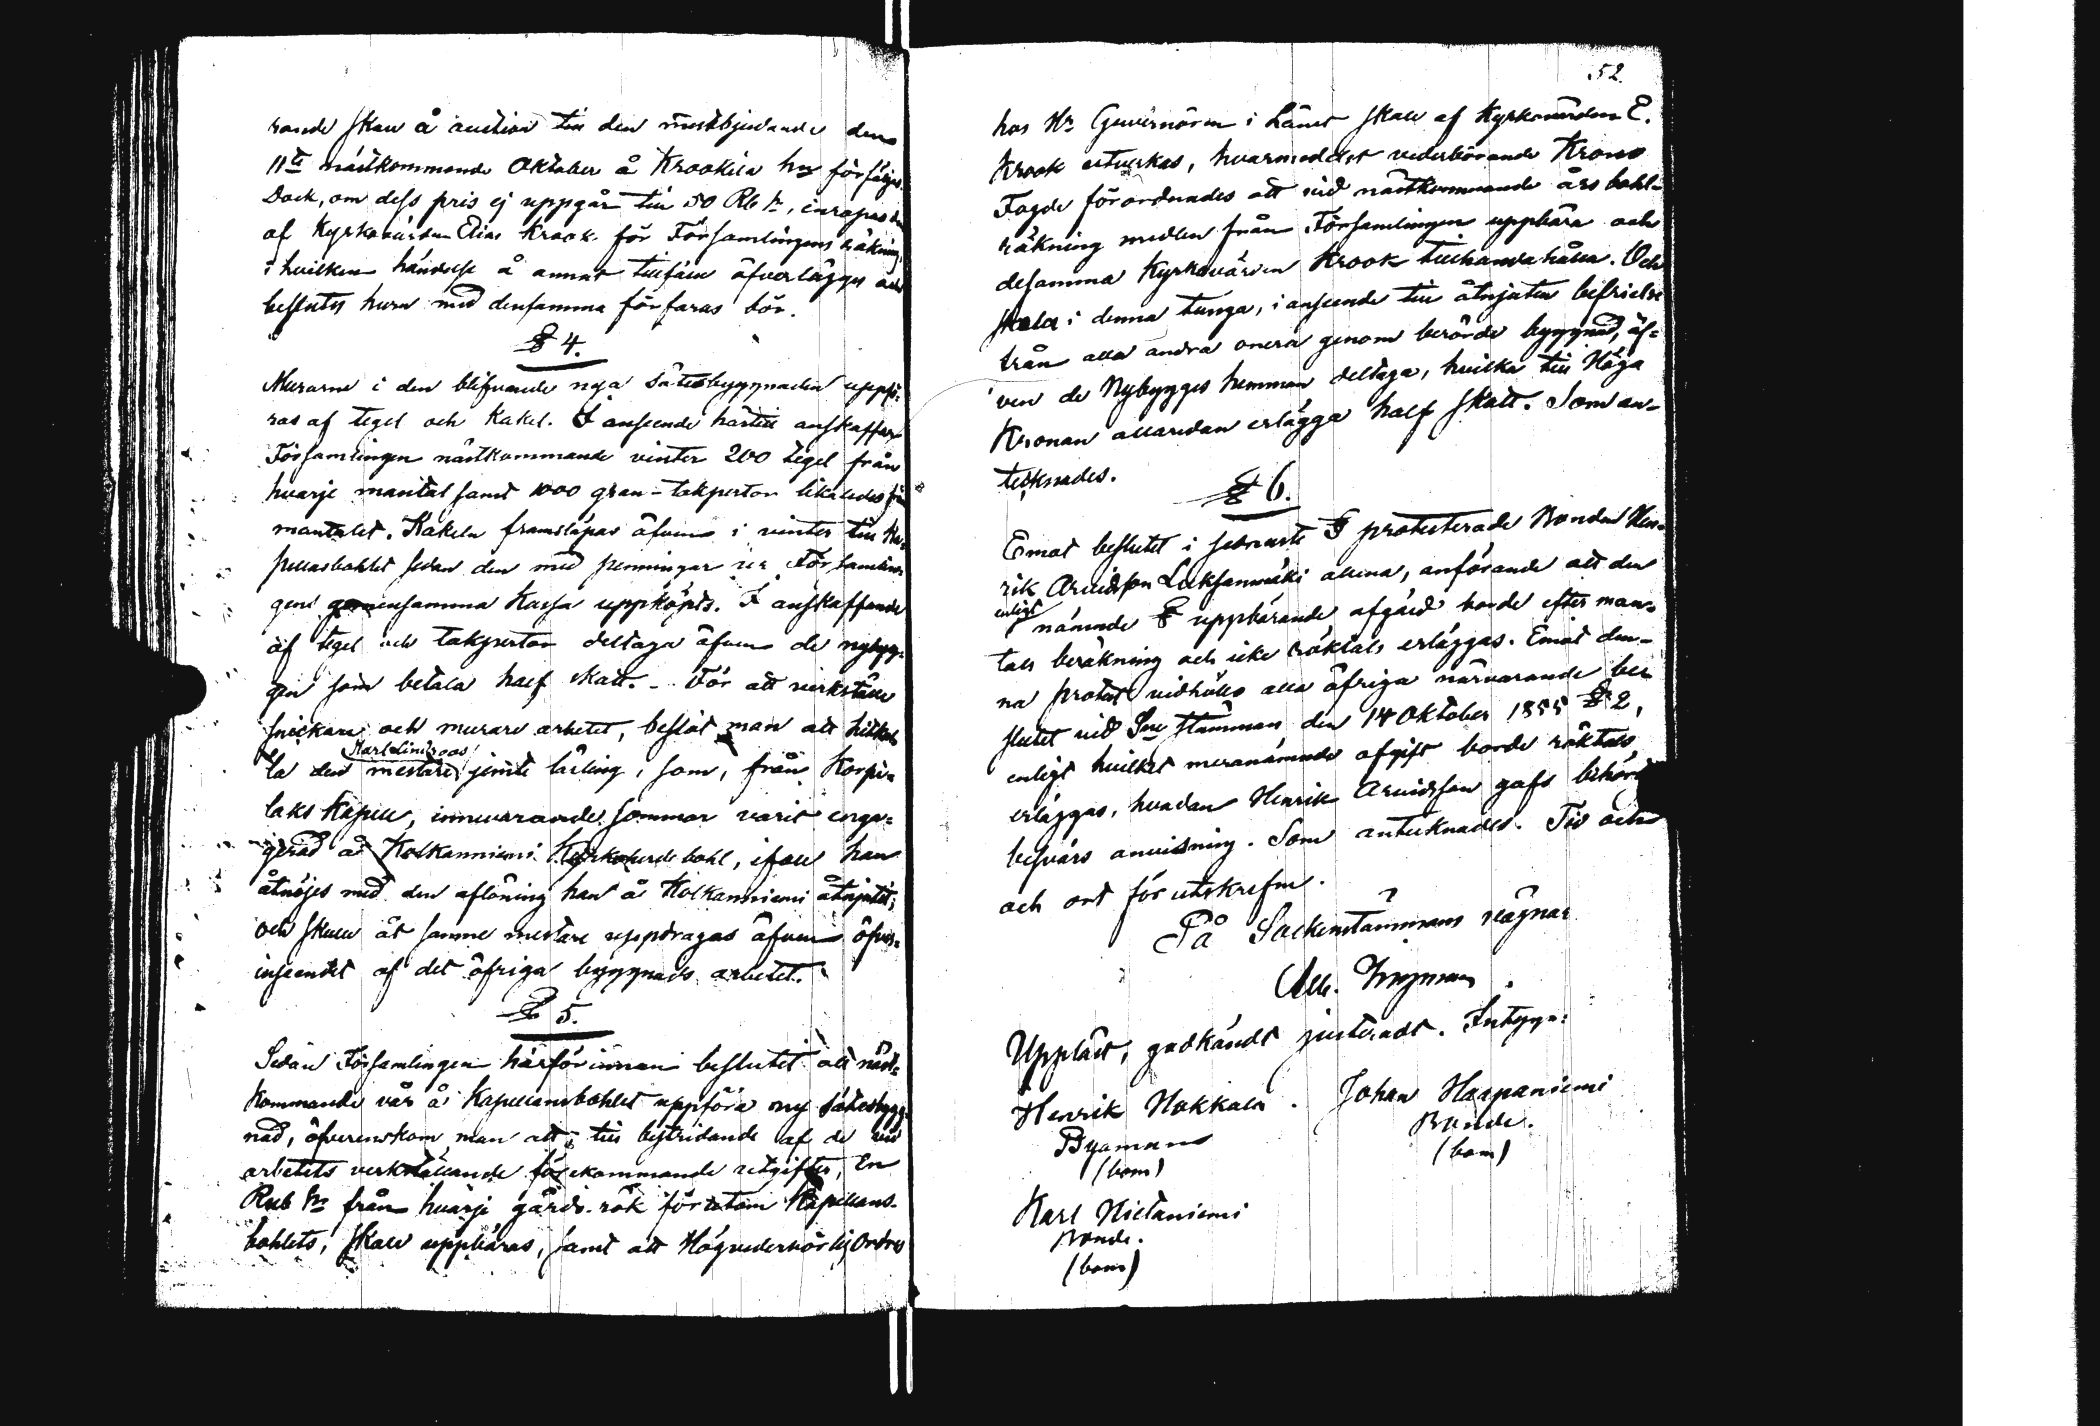 rande skall å auction till den mestbjudande den
11te nästkommande Oktober å Krookila hn försäljas.
Dock, om dess pris ej uppgår till 50 Rb Sr, inropas den
af Kyrkovärden Elias Krook för Församlingens räkning,
i hvilken händelse å annat tillfälle öfverlägges och
beslutes huru med densamma förfaras bör.
§ 4.
Murarne i den blifvande nya sätesbyggnaden uppfö=
ras af tegel och kakel. I anseende härtill anskaffar
Församlingen nästkommande vinter 200 tegel från
hvarje mantal samt 1000 gran-takpertor likaledes från
mantalet. Kakeln framsläpas äfven i vinter till Ka=
pellansbohlet sedan den med penningar ur Församlin=
gens gemensamma Kassa uppköpts. I anskaffande
af tegel och takpertor deltaga äfven de nybyg=
gen som betala half skatt. - För att verkställa
snickare och murare arbetet, beslöt man att hitkal=
Karl Lindroos
la den mestare jemte lärling, som, från Korpi=
laks Kapell, innevarande sommar varit enga=
gerad å Kolkanniemi Kyrkoherdebohl, ifall han
åtnöjes med den aflöning han å Kolkanniemi åtnjutit;
och skulle åt samme mestare uppdragas äfven öfver=
inseendet af det öfriga byggnads arbetet.
§ 5.
Sedan Församlingen härförinnan beslutit att näst=
kommande vår å Kapellansbohlet uppföra ny sätesbygg=
nad, öfverenskom man att, till bestridande af de vid
arbetets verkställande förekommande utgifter, En
Rub Sr från hvarje gårds-rök förutom Kapellans-
bohlets, skall uppbäras, samt att Högvederbörlig Ordres
52.
hos Hr Guvernören i Länet skall af Kyrkovärden E.
Krook utverkas, hvarmedelst vederbörande Krono
Fogde förordnades att vid nästkommande års bohl=
räkning medlen från Församlingen uppbära och
desamma Kyrkovärden Krook tillhandahålla. Och
skola i denna tunga, i anseende till åtnjuten befrielse
från alla andra onera genom berörde byggnad, äf=
ven de Nybygges hemman deltaga, hvilka till Höga
Kronan allaredan erlägga half skatt. Som an=
tecknades.
§ 6.
Emot beslutet i sednaste § protesterade Bonden Hen=
rik Arvidsson Leksanmäki allena, anförande att den
enligt
nämnde § uppbärande afgård borde efter man=
tals beräkning och icke röktals erläggas. Emot den=
na protest vidhöllo alla öfriga närvarande be=
slutet vid Sne Stämman den 14 Oktober 1855 § 2,
enligt hvilket meranämnde afgift borde röktals
erläggas, hvadan Henrik Arvidsson gafs behörig
besvärs anvisning. Som antecknades. Tid och
och ort för utskrefne.
På Sockenstämmans vägnar
Upplåst, godkändt justeradt. Intyga:
Henrik Hokkala. Johan Harpaniemi
Byaman Bonde.
(bom) (bom)
Karl Hietaniemi
Bonde.
(bom)